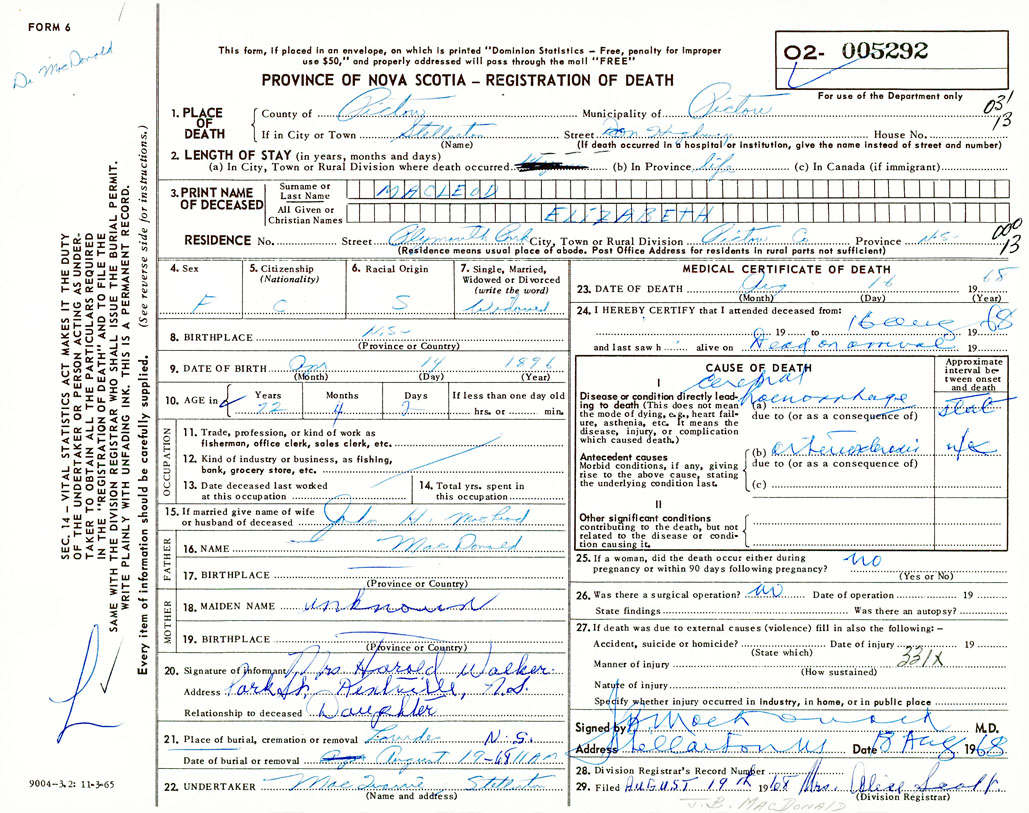 FORM 6
Dr MacDonald
This form, if placed in an envelope, on which is printed "Dominion Statistics – Free, penalty for improper
use $50," and properly addressed will pass through the mail "FREE"
PROVINCE OF NOVA SCOTIA – REGISTRATION OF DEATH
02- 005292
For use of the Department only
031
13
1. PLACE OF DEATH
County of Pictou Municipality of Pictou
If in City or Town Stellarton Street Highway House No.
(Name) (If death occurred in a hospital or institution, give the name instead of street and number)
2. LENGTH OF STAY (in years, months and days)
(a) In City, Town or Rural Division where death occurred (b) In Province life (c) In Canada (if immigrant)
3. PRINT NAME OF DECEASED
Surname or Last Name MACLEOD
All Given or Christian Names ELIZABETH
000
13
RESIDENCE No. Street Plymouth Park City, Town or Rural Division Pictou Co. Province N.S.
(Residence means usual place of abode. Post Office Address for residents in rural parts not sufficient)
4. Sex F
5. Citizenship (Nationality) C
6. Racial Origin S
7. Single, Married, Widowed or Divorced (write the word) Widowed
8. BIRTHPLACE N.S.
(Province or Country)
9. DATE OF BIRTH 14 1896
(Month) (Day) (Year)
10. AGE in Years Months Days If less than one day old
72 4 2 hrs. or min.
OCCUPATION
11. Trade, profession, or kind of work as
fisherman, office clerk, sales clerk, etc.
12. Kind of industry or business, as fishing,
bank, grocery store, etc.
13. Date deceased last worked
at this occupation
14. Total yrs. spent in
this occupation
15. If married give name of wife
or husband of deceased John H. MacLeod
FATHER
16. NAME MacDonald
17. BIRTHPLACE
(Province or Country)
MOTHER
18. MAIDEN NAME unknown
19. BIRTHPLACE
(Province or Country)
20. Signature of informant Mrs. Harold Walker
Address Park St, Kentville, N.S.
Relationship to deceased Daughter
21. Place of burial, cremation or removal Lourdes N.S.
Date of burial or removal August 19-68 11 AM
22. UNDERTAKER Stellarton
(Name and address)
MEDICAL CERTIFICATE OF DEATH
23. DATE OF DEATH Aug 16 1968
(Month) (Day) (Year)
24. I HEREBY CERTIFY that I attended deceased from:
19 to 16 aug 1968
and last saw h alive on Dead on arrival 19
CAUSE OF DEATH
Approximate interval between onset and death
I
Disease or condition directly leading to death (This does not mean the mode of dying, e.g., heart failure, asthenia, etc. It means the disease, injury, or complication which caused death.)
(a) cerebral haemorrhage stat
due to (or as a consequence of)
Antecedent causes
Morbid conditions, if any, giving rise to the above cause, stating the underlying condition last.
(b) arteriosclerosis n/k
due to (or as a consequence of)
(c)
II
Other significant conditions
contributing to the death, but not related to the disease or condition causing it.
25. If a woman, did the death occur either during
pregnancy or within 90 days following pregnancy? no
(Yes or No)
26. Was there a surgical operation? no Date of operation 19
State findings Was there an autopsy?
27. If death was due to external causes (violence) fill in also the following: –
Accident, suicide or homicide? Date of injury 19
(State which) 331X
Manner of injury
(How sustained)
Nature of injury
Specify whether injury occurred in industry, in home, or in public place
Signed by M.D.
Address Stellarton NS Date 18 Aug 1968
28. Division Registrar's Record Number
29. Filed AUGUST 19th 1968 Mrs. Alice Scott
(Division Registrar)
J.B. MACDONALD
SEC. 14 – VITAL STATISTICS ACT MAKES IT THE DUTY
OF THE UNDERTAKER OR PERSON ACTING AS UNDER-
TAKER TO OBTAIN ALL THE PARTICULARS REQUIRED
IN THE "REGISTRATION OF DEATH" AND TO FILE THE
SAME WITH THE DIVISION REGISTRAR WHO SHALL ISSUE THE BURIAL PERMIT.
WRITE PLAINLY WITH UNFADING INK. THIS IS A PERMANENT RECORD.
Every item of information should be carefully supplied. (See reverse side for instructions.)
9004-3.2: 11-3-65